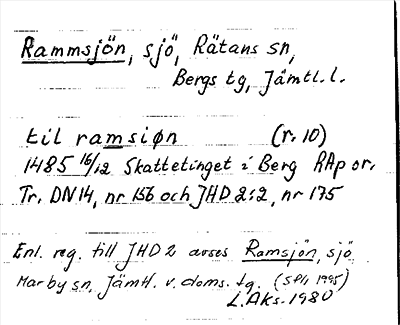 Rammsjön, sjö, Rätans sn,
Bergs tg, Jämtl. l.
til ramsiøn (r. 10)
1485 16/12 Skattetinget i Berg RAp or.
Tr. DN14, nr 156 och JHD 2:2, nr 175
Enl. reg. till JHD 2 avses Ramsjön, sjö
Marby sn, Jämtl. v. doms. tg. (SPh 1995)
L.Aks. 1980